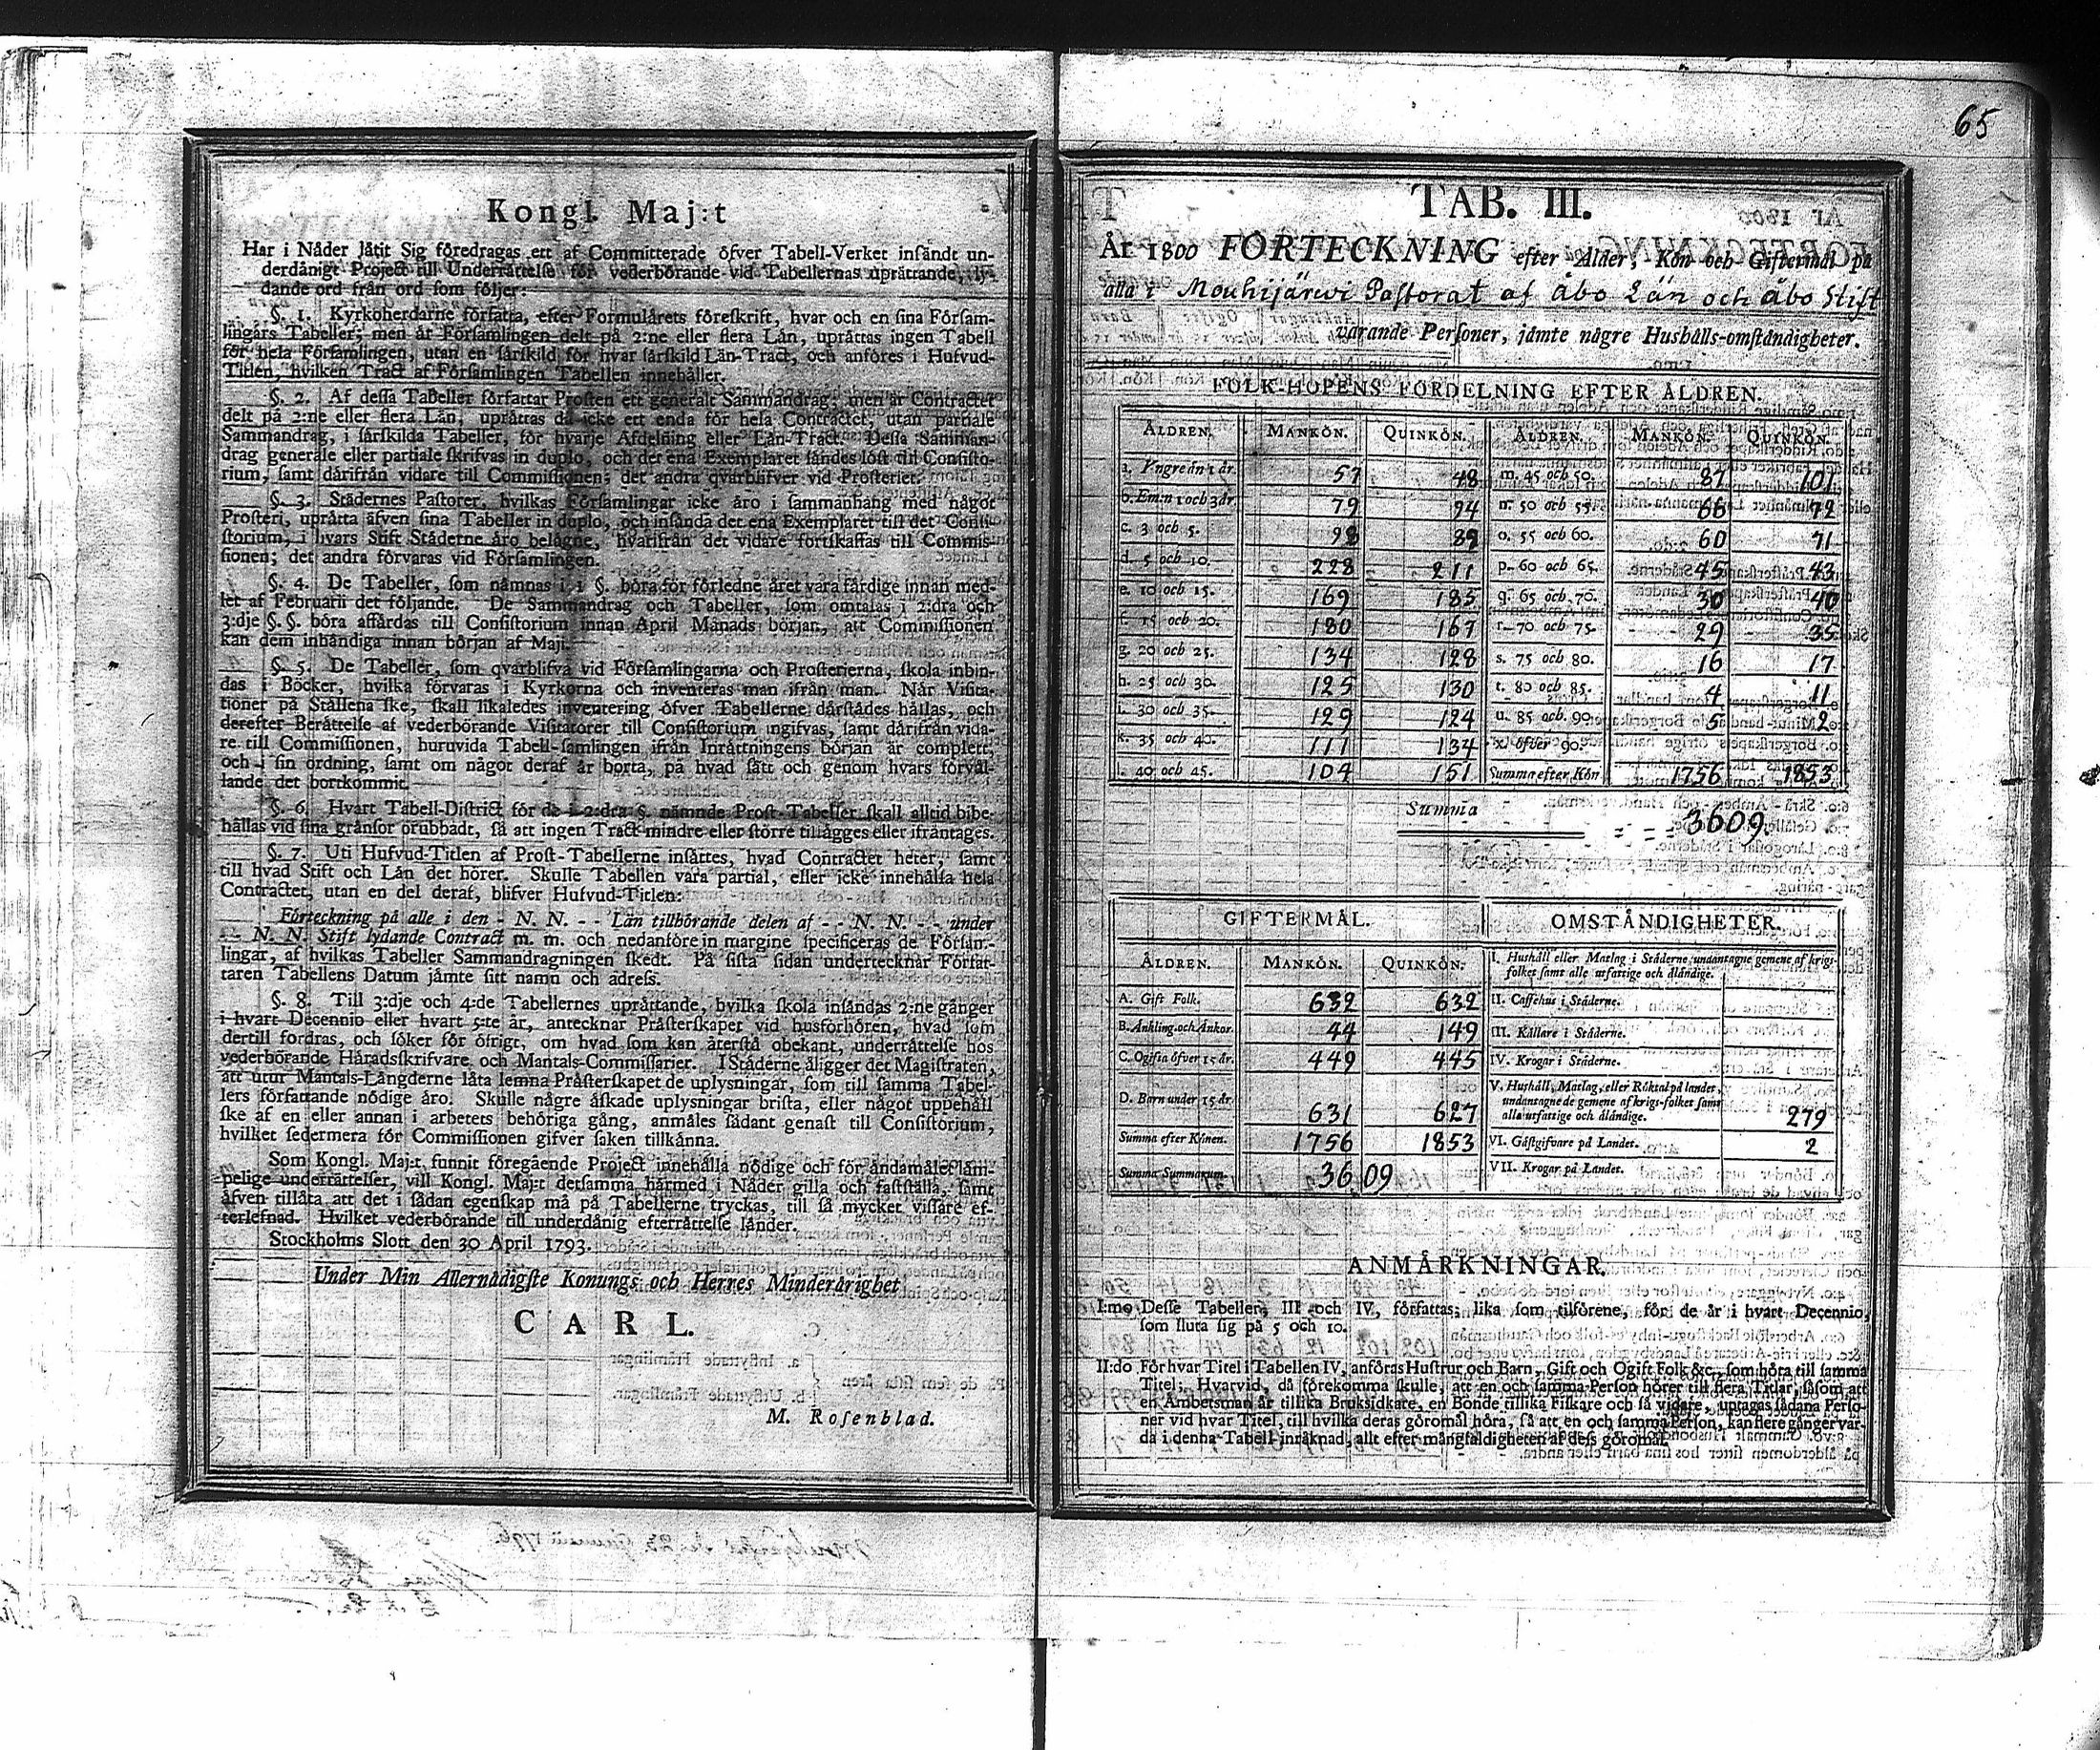 Kongl. Maj:t
Har i Nåder låtit Sig föredragas ett af Committerade öfver Tabell-Verket insändt un-
derdånigt Project till Underrättelse för vederbörande vid Tabellernas uprättande, ly-
dande ord från ord som följer:
§. 1. Kyrkoherdarne författa, efter Formulärets föreskrift, hvar och en sina Försam-
lingars Tabeller; men är Församlingen delt på 2:ne eller flera Län, uprättas ingen Tabell
för hela Församlingen, utan en särskild för hvar särskild Län-Tract, och anföres i Hufvud-
Titlen, hvilken Tract af Församlingen Tabellen innehåller.
§. 2. Af dessa Tabeller författar Prosten ett generalt Sammandrag; men är Contractet
delt på 2:ne eller flera Län, uprättas då icke ett enda för hela Contractet, utan partiale
Sammandrag, i särskilda Tabeller, för hvarje Afdelning eller Län-Tract. Dessa Samman-
drag generale eller partiale skrifvas in duplo, och det ena Exemplaret sändes löst till Consisto-
rium, samt därifrån vidare till Commissionen; det andra qvarblifver vid Prosteriet.
§. 3. Städernes Pastorer, hvilkas Församlingar icke äro i sammanhang med något
Prosteri, uprätta äfven sina Tabeller in duplo, och insända det ena Exemplaret till det Consi-
storium, i hvars Stift Städerne äro belägne, hvarifrån det vidare fortskaffas till Commis-
sionen; det andra förvaras vid Församlingen.
§. 4. De Tabeller, som nämnas i 1 §. böra för förledne året vara färdige innan med-
let af Februarii det följande. De Sammandrag och Tabeller, som omtalas i 2:dra och
3:dje §. §. böra affärdas till Consistorium innan April Månads början, att Commissionen
kan dem inhändiga innan början af Maji.
§. 5. De Tabeller, som qvarblifva vid Församlingarna och Prosterierna, skola inbin-
das i Böcker, hvilka förvaras i Kyrkorna och inventeras man ifrån man. När Visita-
tioner på Ställena ske, skall likaledes inventering öfver Tabellerne därstädes hållas, och
derefter Berättelse af vederbörande Visitatorer till Consistorium ingifvas, samt därifrån vida-
re till Commissionen, huruvida Tabell-samlingen ifrån Inrättningens början är complett,
och i sin ordning, samt om något deraf är borta, på hvad sätt och genom hvars förvål-
lande det bortkommit.
§. 6. Hvart Tabell-District för de i 2:dra §. nämnde Prost-Tabeller skall alltid bibe-
hållas vid sina gränsor orubbadt, så att ingen Tract mindre eller större tillägges eller ifråntages.
§. 7. Uti Hufvud-Titlen af Prost-Tabellerne insättes, hvad Contractet heter, samt
till hvad Stift och Län det hörer. Skulle Tabellen vara partial, eller icke innehålla hela
Contractet, utan en del deraf, blifver Hufvud-Titlen:
Förteckning på alle i den - N. N. - - Län tillhörande delen af - - N. N. - - under
- - N. N. Stift lydande Contract m. m. och nedanföre in margine specificeras de Församl-
lingar, af hvilkas Tabeller Sammandragningen skedt. På sista sidan undertecknar Författ-
taren Tabellens Datum jämte sitt namn och adress.
§. 8. Till 3:dje och 4:de Tabellernes uprättande, hvilka skola insändas 2:ne gånger
i hvart Decennio eller hvart 5:te år, antecknar Prästerskapet vid husförhören, hvad som
dertill fordras, och söker för öfrigt, om hvad som kan återstå obekant, underrättelse hos
vederbörande Häradsskrifvare och Mantals-Commissarier. I Städerne åligger det Magistraten,
att utur Mantals-Längderne låta lemna Prästerskapet de uplysningar, som till samma Tabel-
lers författande nödige äro. Skulle någre äskade uplysningar brista, eller något uppehåll
ske af en eller annan i arbetets behöriga gång, anmäles sådant genast till Consistorium,
hvilket sedermera för Commissionen gifver saken tillkänna.
Som Kongl. Maj:t funnit föregående Project innehålla nödige och för ändamålet läm-
pelige underrättelser, vill Kongl. Maj:t detsamma härmed i Nåder gilla och fastställa, samt
äfven tillåta att det i sådan egenskap må på Tabellerne tryckas, till så mycket vissare ef-
terlefnad. Hvilket vederbörande till underdånig efterrättelse länder.
Stockholms Slott den 30 April 1793.
Under Min Allernådigste Konungs och Herres Minderårighet
CARL.
M. Rosenblad.
65
TAB. III.
År 1800 FÖRTECKNING efter Ålder, Kön och Giftermål på
alla i Mouhijärwi Pastorat af Åbo Län och Åbo Stift
varande Personer, jämte någre Hushålls-omständigheter.
FOLK-HOPENS FÖRDELNING EFTER ÅLDREN.
ÅLDREN. MANKÖN. QUINKÖN. ÅLDREN. MANKÖN. QUINKÖN.
a. Yngre än 1 år. 57 48 m. 45 och 50. 87 101
b. Em:n 1 och 3 år. 79 94 n. 50 och 55. 66 72
c. 3 och 5. 98 89 o. 55 och 60. 60 71
d. 5 och 10. 228 211 p. 60 och 65. 45 43
e. 10 och 15. 169 185 q. 65 och 70. 30 40
f. 15 och 20. 180 167 r. 70 och 75. 29 35
g. 20 och 25. 134 128 s. 75 och 80. 16 17
h. 25 och 30. 125 130 t. 80 och 85. 4 11
i. 30 och 35. 129 124 u. 85 och 90. 5 2
k. 35 och 40. 111 134 x. öfver 90.
l. 40 och 45. 104 151 Summa efter Kön 1756 1853
Summa = = = 3609.
GIFTERMÅL. OMSTÄNDIGHETER.
ÅLDREN. MANKÖN. QUINKÖN. I. Hushåll eller Matlag i Städerne undantagne gemene af krigs-
folket samt alle utfattige och åländige.
A. Gift Folk. 632 632 II. Caffehus i Städerne.
B. Änkling. och Änkor. 44 149 III. Källare i Städerne.
C. Ogifta öfver 15 år. 449 445 IV. Krogar i Städerne.
D. Barn under 15 år. 631 627 V. Hushåll, Matlag, eller Röktal på landet,
undantagne de gemene af krigs-folket samt
alla utfattige och åländige. 279
Summa efter Könen. 1756 1853 VI. Gästgifvare på Landet. 2
Summa Summarum. 3609 VII. Krogar på Landet.
ANMÄRKNINGAR.
I:mo Desse Tabeller, III och IV, författas, lika som tilförene, för de år i hvart Decennio,
som sluta sig på 5 och 10.
II:do För hvar Titel i Tabellen IV, anföras Hustrur och Barn, Gift och Ogift Folk &c., som höra till samma
Titel; Hvarvid, då förekomma skulle, att en och samma Person hörer till flera Titlar, såsom att
en Ämbetsman är tillika Bruksidkare, en Bonde tillika Fiskare och så vidare, uptagas sådana Perso-
ner vid hvar Titel, till hvilka deras göromål höra, så att en och samma Person, kan flere gånger var-
da i denna Tabell inräknad, allt efter mångfaldigheten af dess göromål.